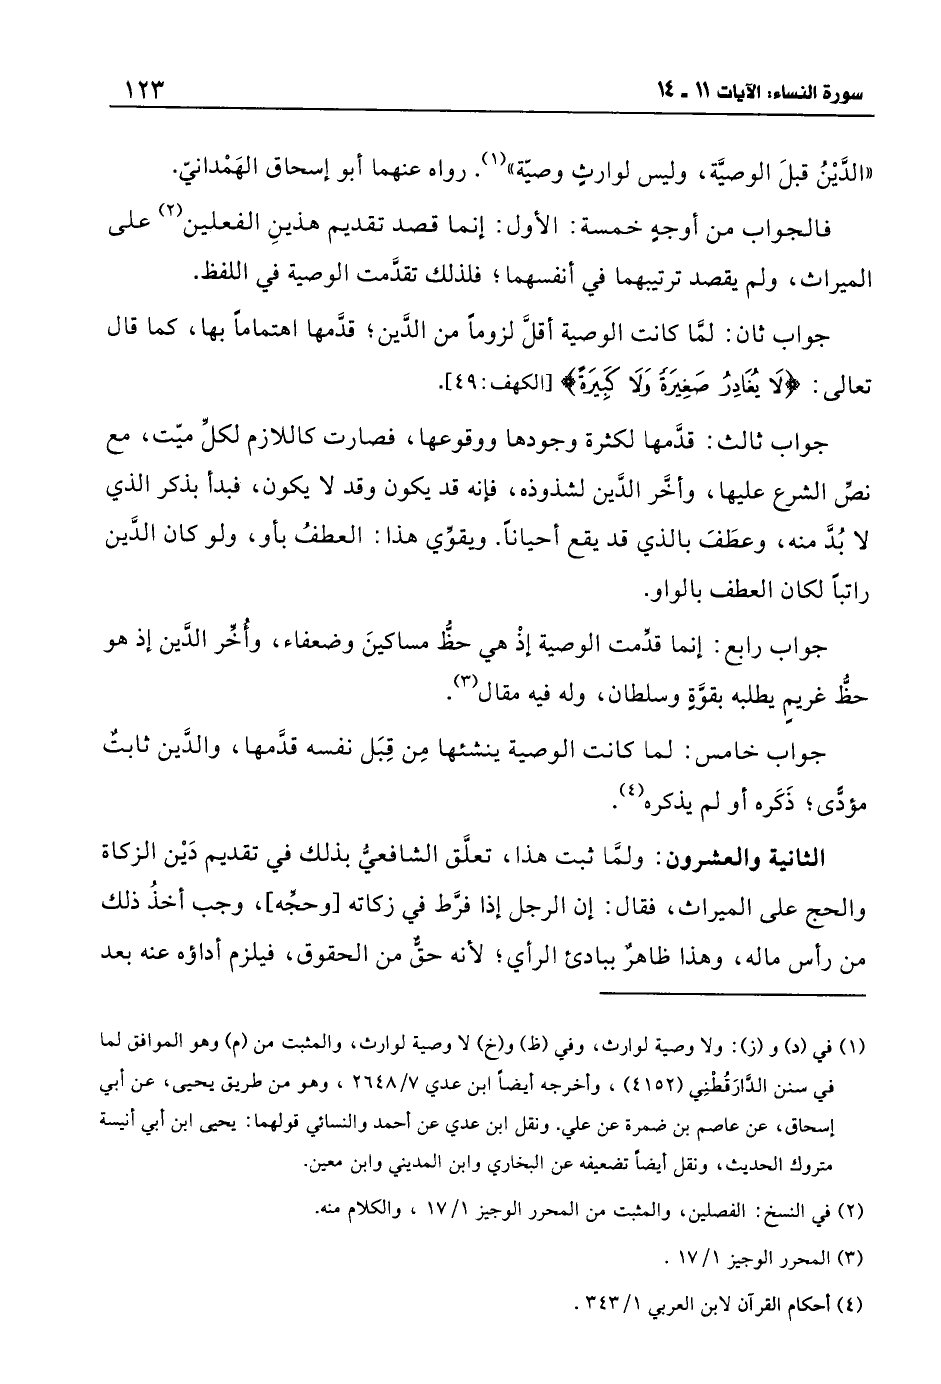 سورة النساء: الآيات ١١ - ١٤
١٢٣
«الدَّيْنُ قبلَ الوصيَّة، وليس لوارثٍ وصيّة»(١). رواه عنهما أبو إسحاق الهَمْدانيّ.
فالجواب من أوجهٍ خمسة: الأول: إنما قصد تقديم هذينِ الفعلين(٢) على
الميراث، ولم يقصد ترتيبهما في أنفسهما؛ فلذلك تقدَّمت الوصية في اللفظ.
جواب ثان: لمَّا كانت الوصية أقلَّ لزوماً من الدَّين؛ قدَّمها اهتماماً بها، كما قال
تعالى: ﴿لَا يُغَادِرُ صَغِيرَةً وَلَا كَبِيرَةً﴾ [الكهف: ٤٩].
جواب ثالث: قدَّمها لكثرة وجودها ووقوعها، فصارت كاللازم لكلِّ ميّت، مع
نصِّ الشرع عليها، وأخَّر الدَّين لشذوذه، فإنه قد يكون وقد لا يكون، فبدأ بذكر الذي
لا بُدَّ منه، وعطَفَ بالذي قد يقع أحياناً. ويقوِّي هذا: العطفُ بأو، ولو كان الدَّين
راتباً لكان العطف بالواو.
جواب رابع: إنما قدِّمت الوصية إذْ هي حظُّ مساكينَ وضعفاء، وأُخِّر الدَّين إذ هو
حظُّ غريمٍ يطلبه بقوَّةٍ وسلطان، وله فيه مقال(٣).
جواب خامس: لما كانت الوصية ينشئها مِن قِبَل نفسه قدَّمها، والدَّين ثابتٌ
مؤدًّى؛ ذَكَره أو لم يذكره(٤).
الثانية والعشرون: ولمَّا ثبت هذا، تعلَّق الشافعيُّ بذلك في تقديم دَيْن الزكاة
والحج على الميراث، فقال: إن الرجل إذا فرَّط في زكاته [وحجِّه]، وجب أخذُ ذلك
من رأس ماله، وهذا ظاهرٌ ببادئ الرأي؛ لأنه حقٌّ من الحقوق، فيلزم أداؤه عنه بعد
(١) في (د) و (ز): ولا وصية لوارث، وفي (ظ) و(خ) لا وصية لوارث، والمثبت من (م) وهو الموافق لما
في سنن الدَّارَقُطْنِي (٤١٥٢) ، وأخرجه أيضاً ابن عدي ٢٦٤٨/٧ ، وهو من طريق يحيى، عن أبي
إسحاق، عن عاصم بن ضمرة عن علي. ونقل ابن عدي عن أحمد والنسائي قولهما: يحيى ابن أبي أنيسة
متروك الحديث، ونقل أيضاً تضعيفه عن البخاري وابن المديني وابن معين.
(٢) في النسخ: الفصلين، والمثبت من المحرر الوجيز ١٧/١ ، والكلام منه.
(٣) المحرر الوجيز ١٧/١ .
(٤) أحكام القرآن لابن العربي ٣٤٣/١ .